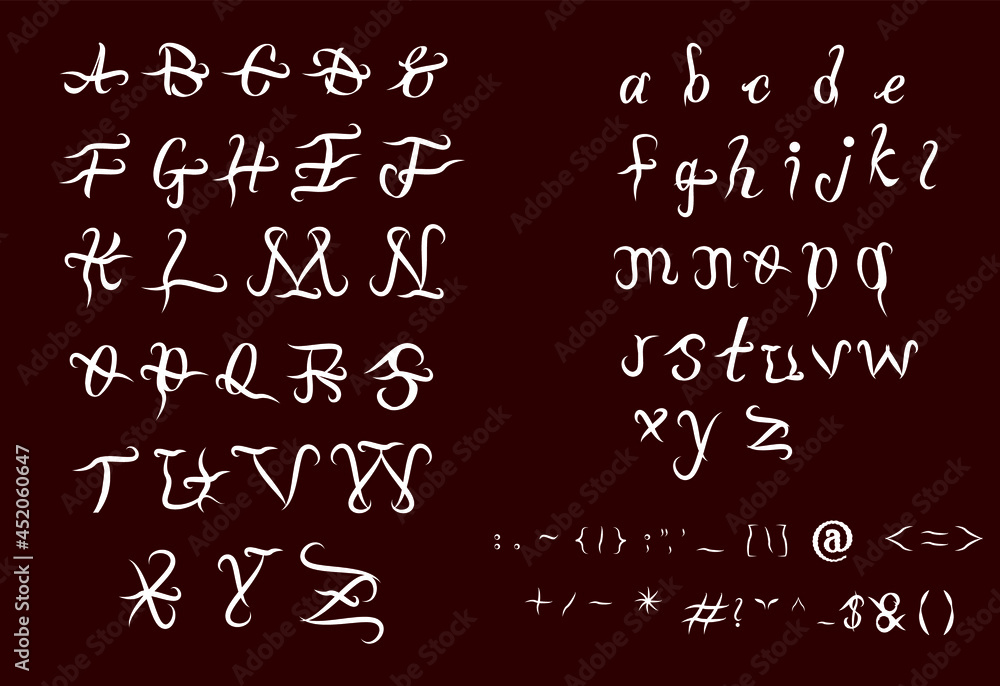 A B C D E
F G H I J
K L M N
O P Q R S
T U V W
X Y Z
a b c d e
f g h i j k l
m n o p q
r s t u v w
x y z
: . ~ { | } ; " ' _ [ \ ] @ < = >
+ / − * # ? ˇ ^ _ $ & ( )
Adobe Stock | #452060647